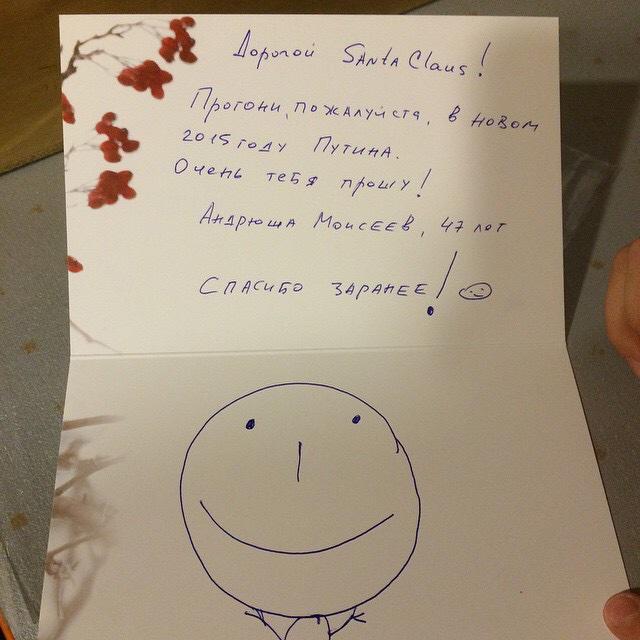 Дорогой Santa Claus!
Прогони, пожалуйста, в новом
2015 году Путина.
Очень тебя прошу!
Андрюша Моисеев, 47 лот
Спасибо заранее!